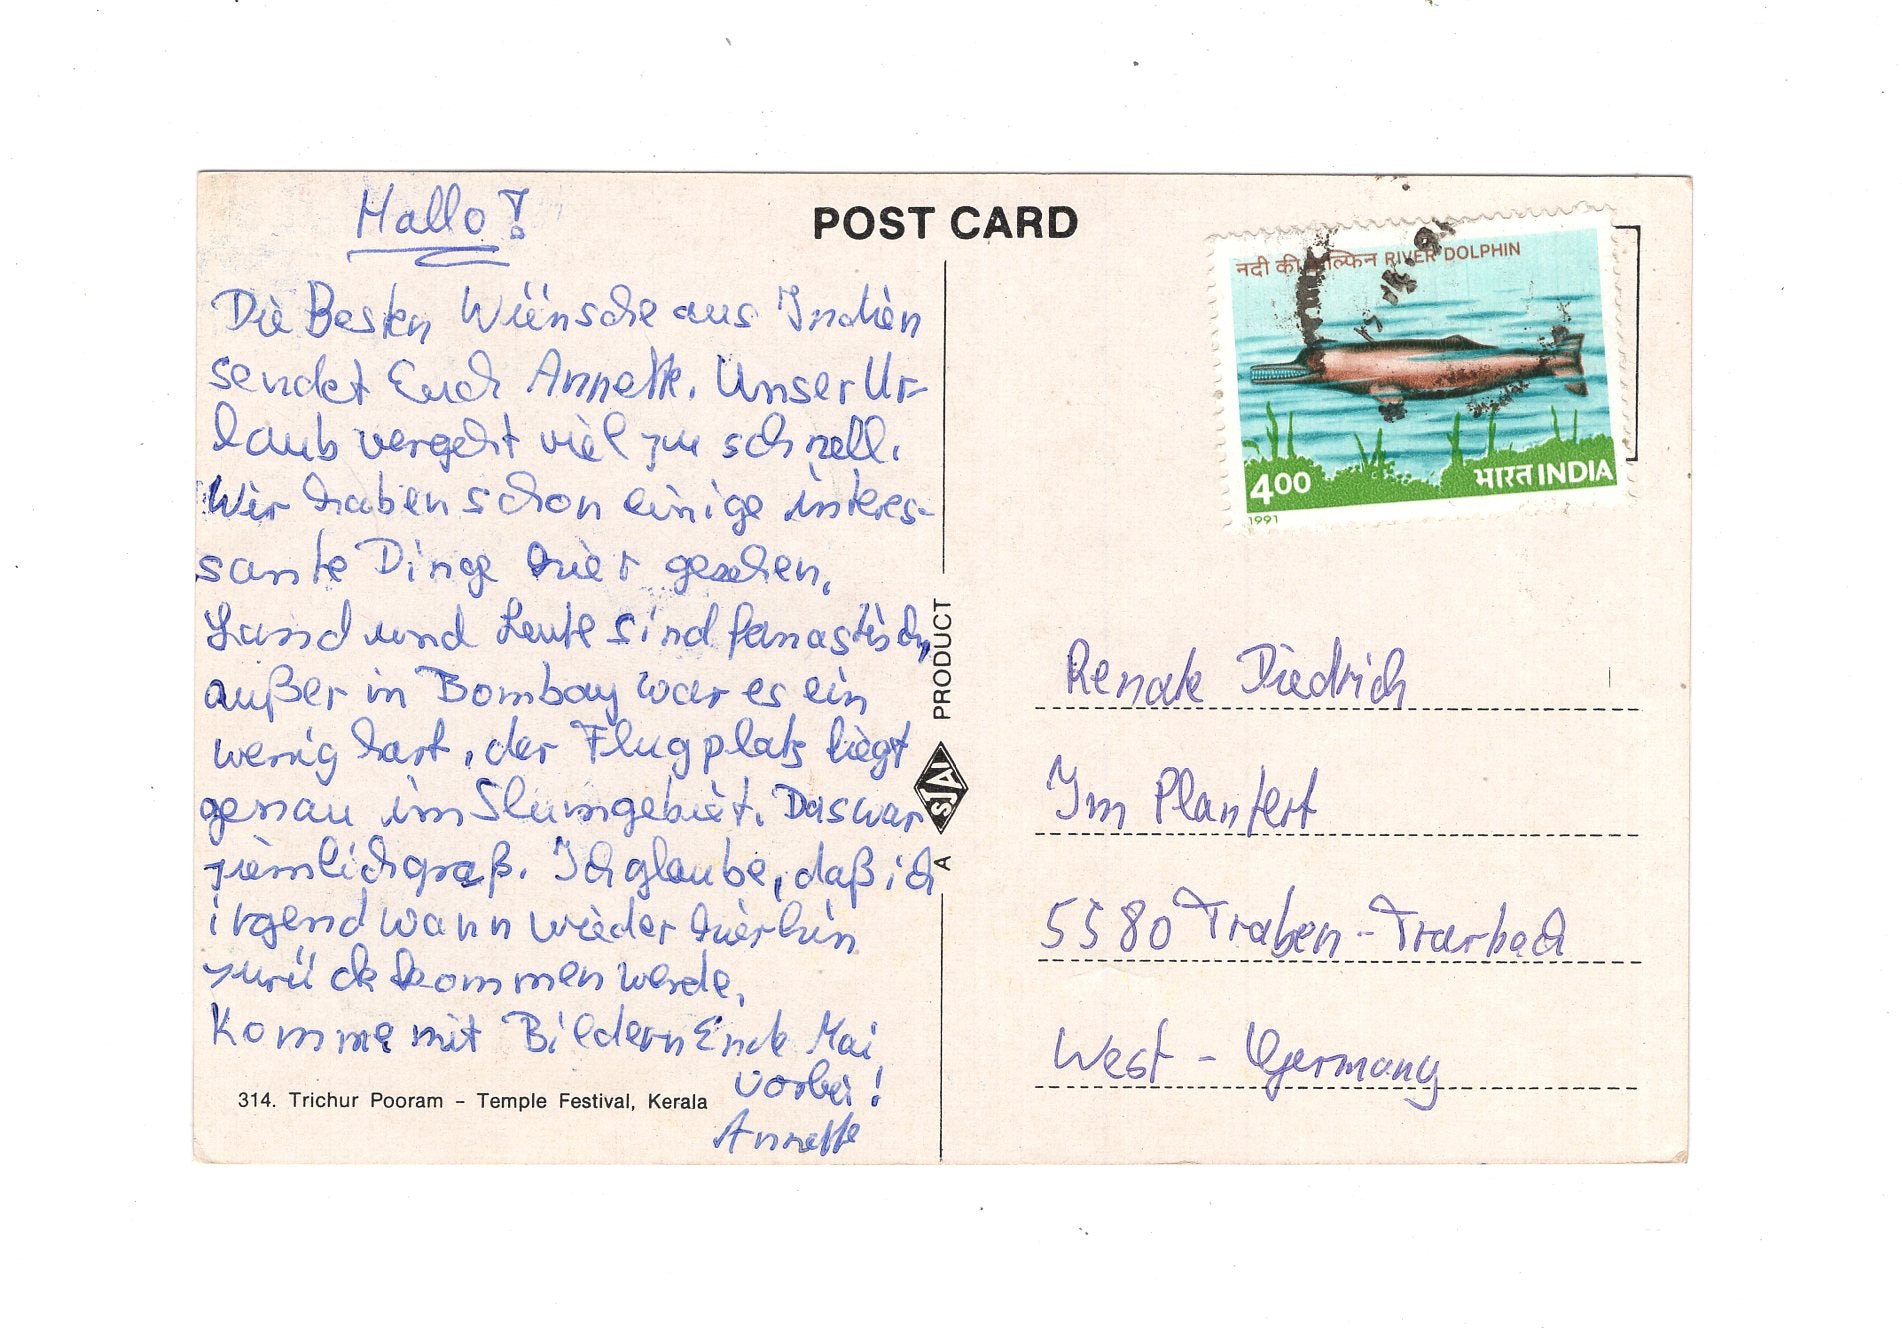 Hallo!
Die Besten Wünsche aus Indien
sendet Euch Annette. Unser Ur-
laub vergeht viel zu schnell.
Wir haben schon einige interes-
sante Dinge hier gesehen.
Land und Leute sind fanastisch,
außer in Bombay war es ein
wenig hart, der Flugplatz liegt
genau im Slumgebiet. Das war
ziemlich graß. Ich glaube, daß ich
irgendwann wieder hierhin
zurück kommen werde.
Komme mit Bildern Ende Mai
vorbei!
Annette
314. Trichur Pooram – Temple Festival, Kerala
POST CARD
A SJA PRODUCT
नदी की डॉल्फिन RIVER DOLPHIN
400
भारत INDIA
1991
Renate Diedrich
Im Plantert
5580 Traben-Trarbach
West-Germany